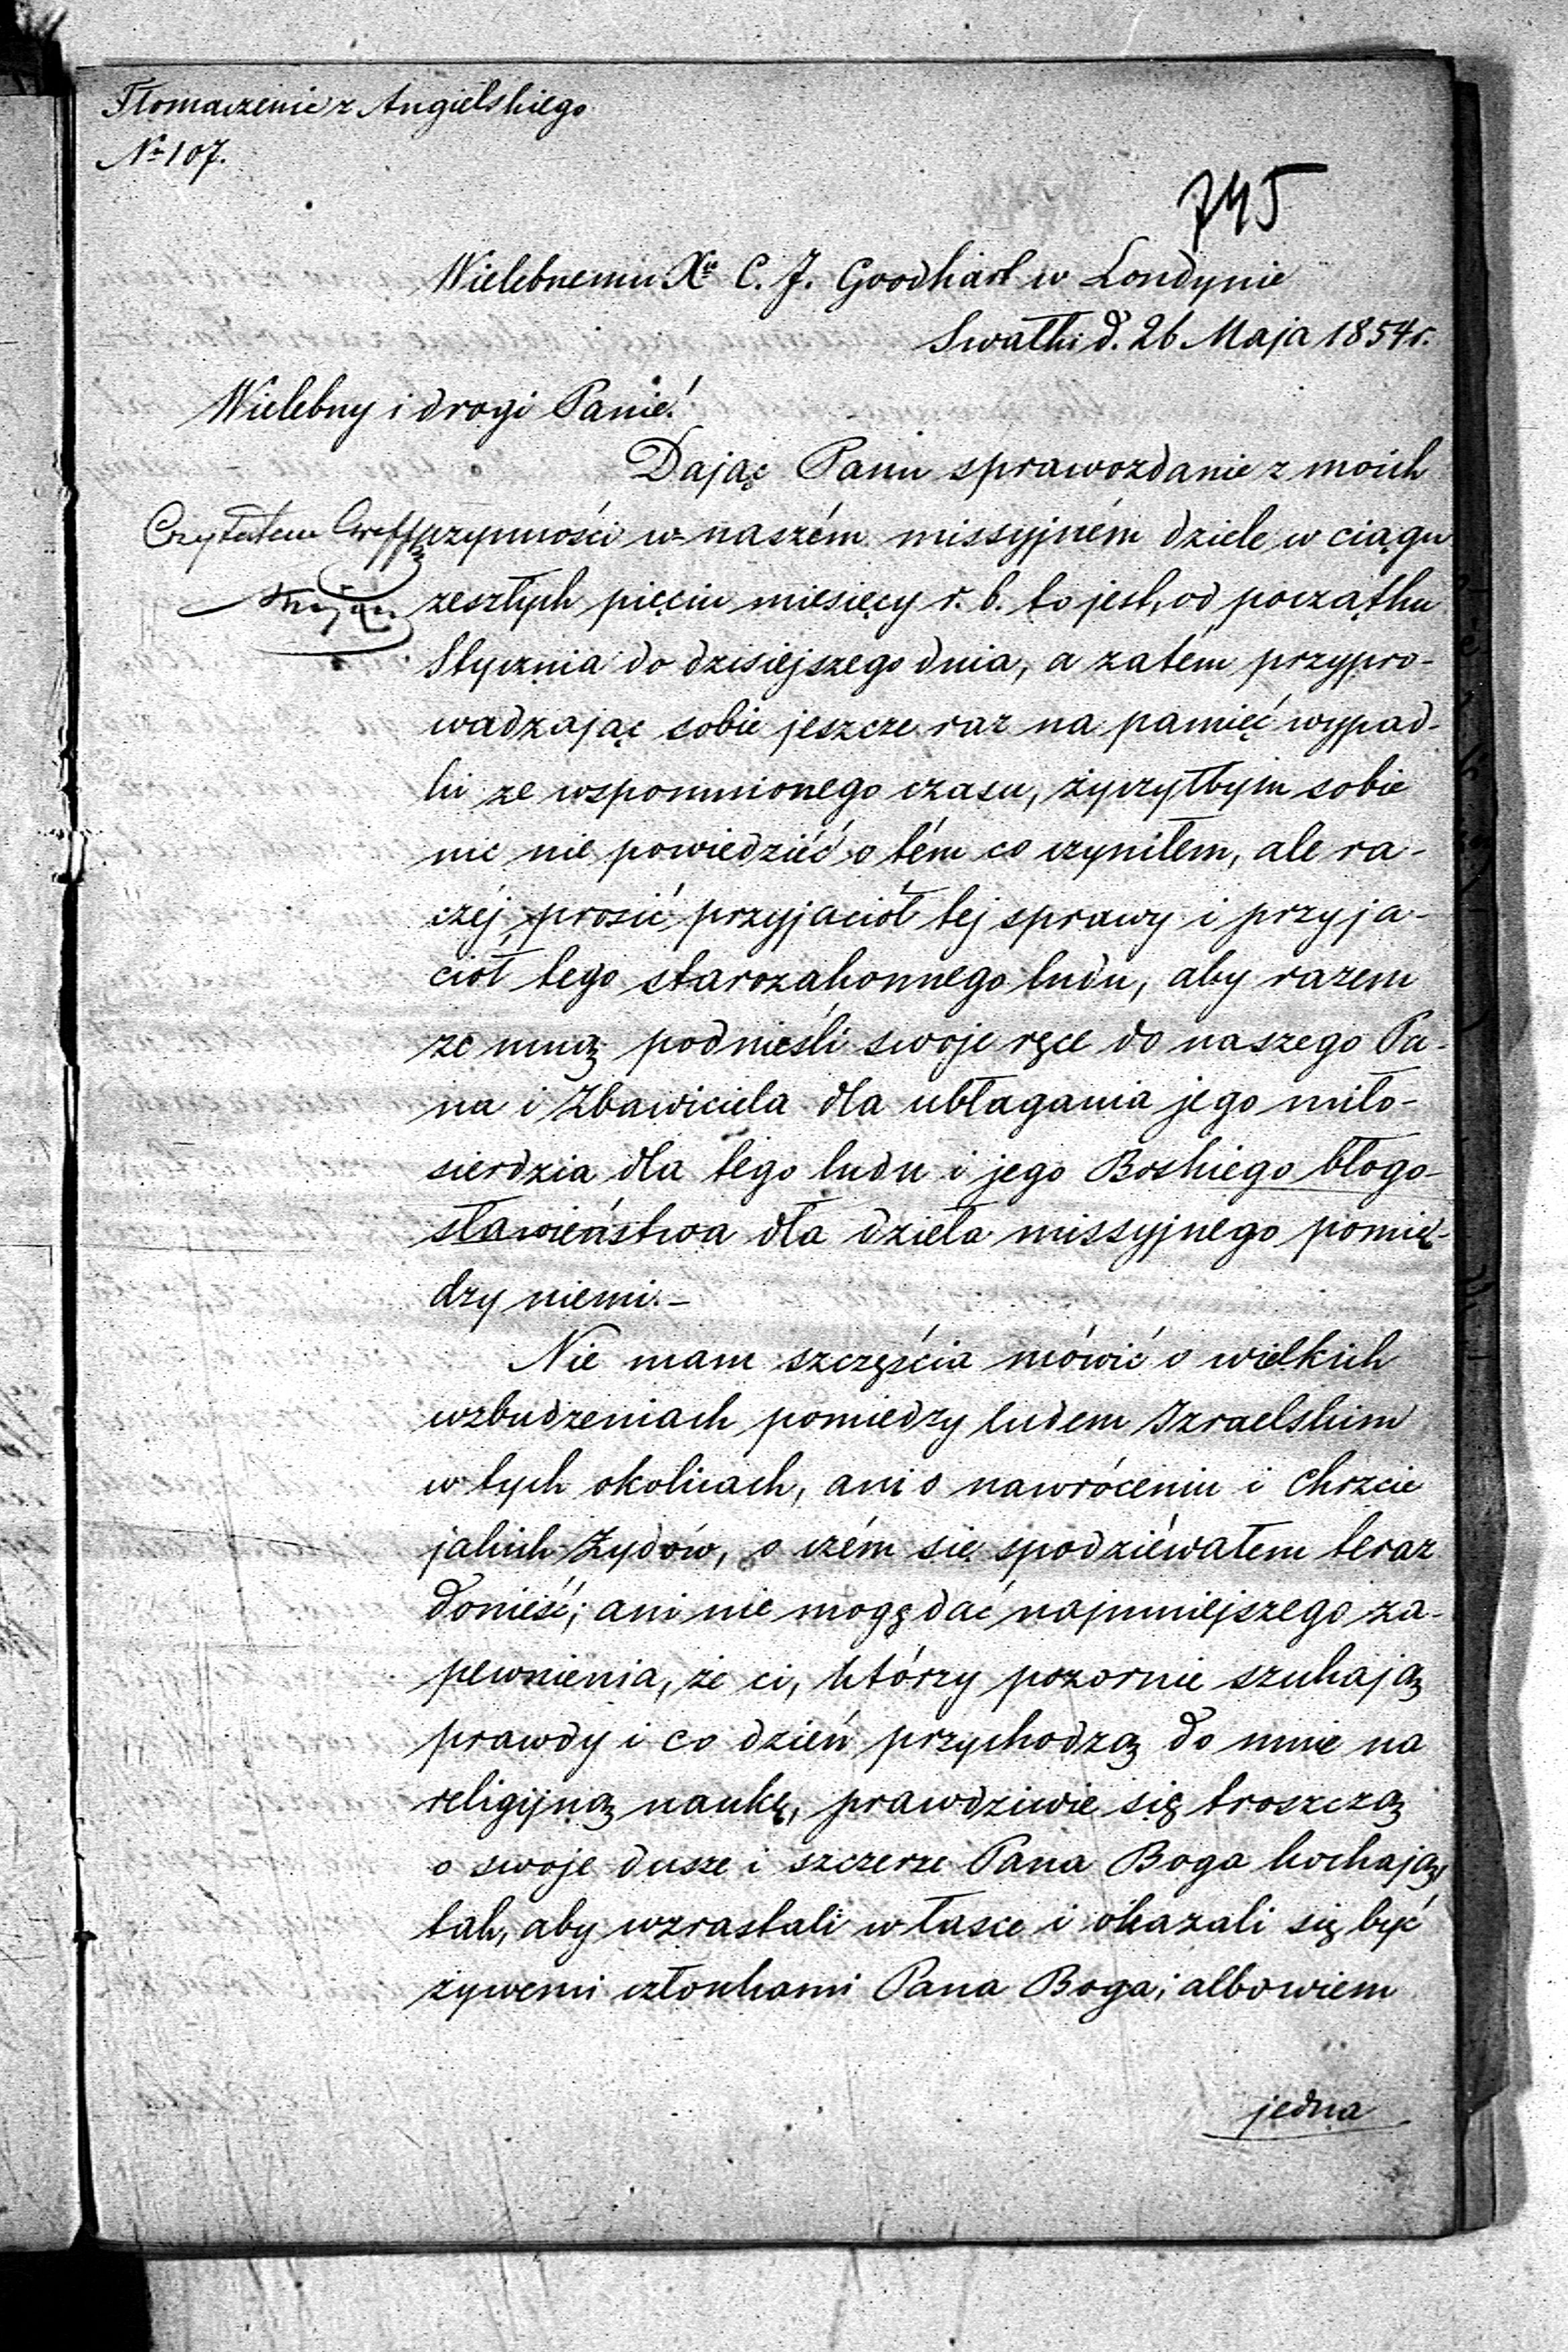 Tłomaczenie z Angielskiego
№ 107.
745
Wielebnemu Xu C. J. Goodhart w Londynie
Suwałki d. 26 Maja 1854 r.
Wielebny i drogi Panie!
Dając Panu sprawozdanie z moich
Czytałem
czynności w naszém missyjném dziele w ciągu
zeszłych pięciu miesięcy r. b. to jest, od początku
Stycznia do dzisiejszego dnia, a zatém przypro-
wadzając sobie jeszcze raz na pamięć wypad-
ki ze wspomnionego czasu, życzyłbym sobie
nic nie powiedzić o tém co czyniłem, ale ra-
czéj prosić przyjaciół tej sprawy i przyja-
ciół tego starozakonnego ludu, aby razem
ze mną podnieśli swoje ręce do naszego Pa-
na i Zbawiciela dla ubłagania jego miło-
sierdzia dla tego ludu i jego Boskiego błogo-
sławieństwa dla dzieła missyjnego pomię-
dzy niemi.-
Nie mam szczęścia mówić o wielkich
wzbudzeniach pomiedzy ludem Izraelskim
w tych okolicach, ani o nawróceniu i Chrzcie
jakich Żydów, o czém się spodziéwałem teraz
donieść; ani nie mogę dać najmniejszego za-
pewnienia, że ci, którzy pozornie szukają
prawdy i co dzień przychodzą do mnie na
religijną naukę, prawdziwie się troszczą
o swoje dusze i szczerze Pana Boga kochają,
tak, aby wzrastali w łasce i okazali się być
żywemi członkami Pana Boga; albowiem
jedna